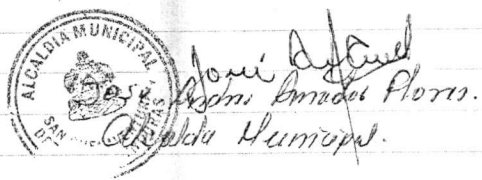 ALCALDIA MUNICIPAL
José
José Andrés Amador Flores.
Alcalde Municipal.
SAN